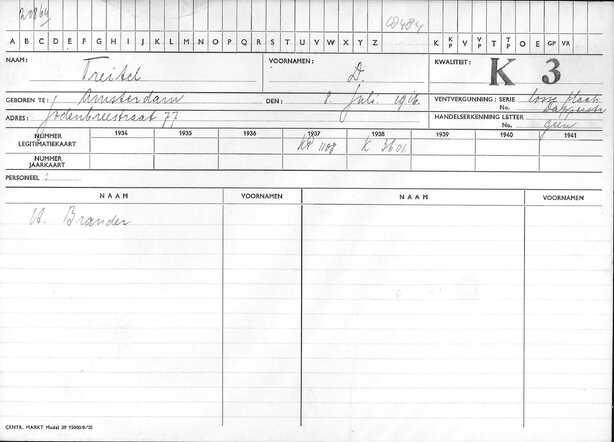 20864 C8484
A B C D E F G H I J K L M N O P Q R S T U V W X Y Z K K P V V P T T P O E GP VR
NAAM: Treitel VOORNAMEN: D. KWALITEIT: K 3
GEBOREN TE: Amsterdam DEN: 8 Juli 1916. VENTVERGUNNING: SERIE losse plaats
No. Dapperstr
ADRES: Jodenbreestraat 77 HANDELSERKENNING LETTER
No. geen
1934 1935 1936 1937 1938 1939 1940 1941
NUMMER LEGITIMATIEKAART KP 1188 K 3601
NUMMER JAARKAART
PERSONEEL:
NAAM VOORNAMEN NAAM VOORNAMEN
W. Brander
CENTR. MARKT Model 39 15000/9/35